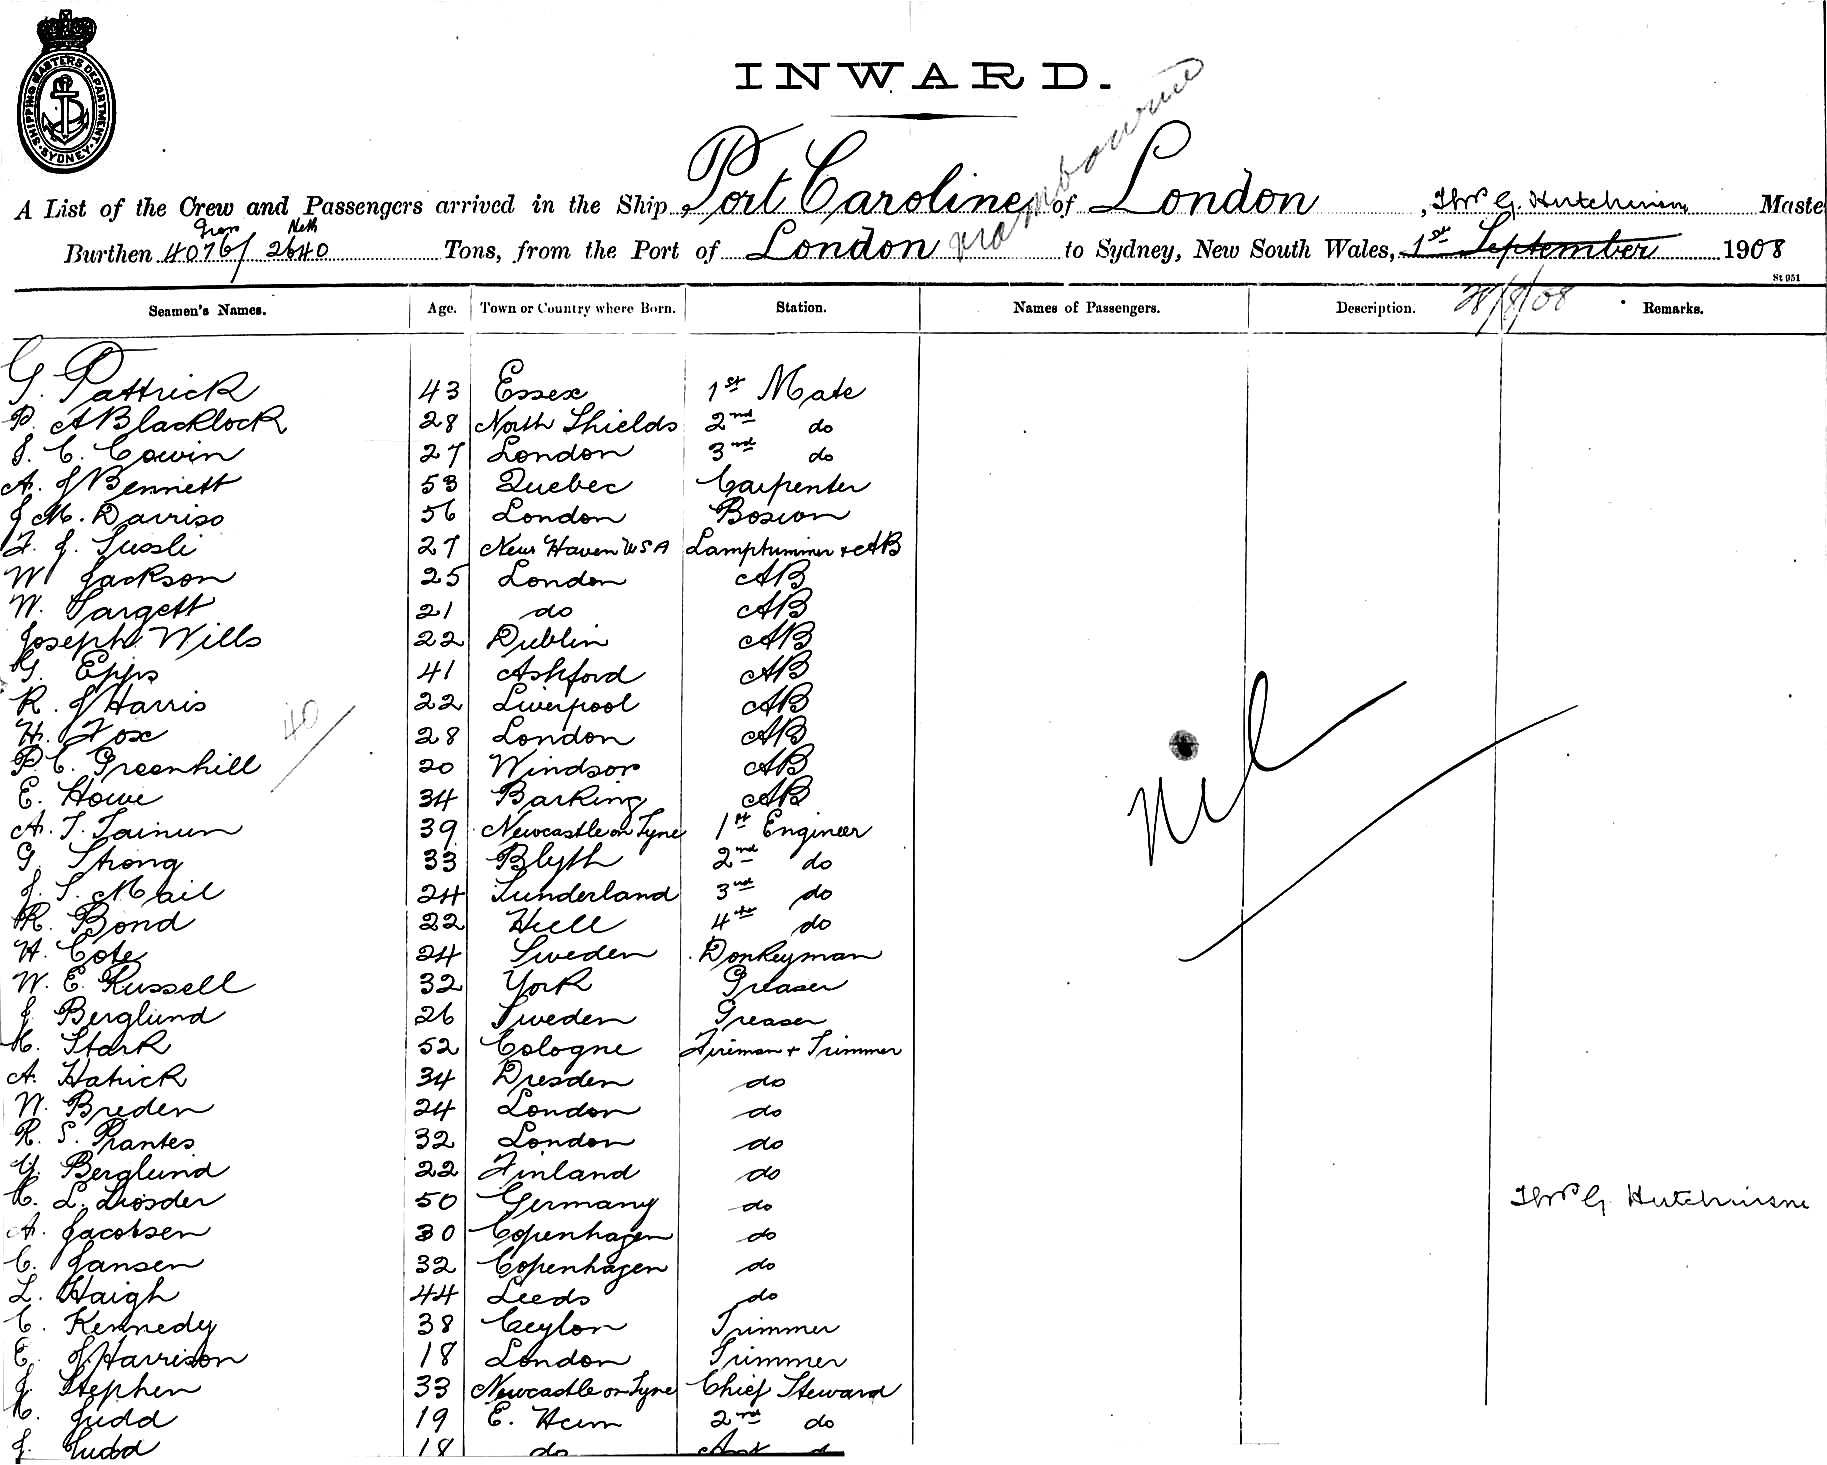 SHIPPING MASTERS DEPARTMENT
SYDNEY
INWARD.
A List of the Crew and Passengers arrived in the Ship Port Caroline of London, Thos G. Hutchinson Maste
Gross Nett
Burthen 4076/2640 Tons, from the Port of London via Melbourne to Sydney, New South Wales, 1st September 1908
St 951
28/8/08
Seamen's Names. Age. Town or Country where Born. Station. Names of Passengers. Description. Remarks.
G. Pattrick 43 Essex 1st Mate
P. A Blacklock 28 North Shields 2nd do
J. C. Cowin 27 London 3rd do
A. J Bennett 53 Quebec Carpenter
J M. Darriso 56 London Bosion
F. J. Sussli 27 New Haven USA Lamptrimmer + AB
W Jackson 25 London AB
W. Targett 21 do AB
Joseph Wills 22 Dublin AB
G. Epps 41 Ashford AB
R. J Harris 22 Liverpool AB
H. Fox 28 London AB
40
P. C. Greenhill 20 Windsor AB
E. Howe 34 Barking AB
A. T. 39 Newcastle on Tyne 1st Engineer
G. Strong 33 Blyth 2nd do
J. T. Mail 24 Sunderland 3rd do
R. Bond 22 Hull 4th do
H. Cote 24 Sweden Donkeyman
W. E. Russell 32 York Greaser
J Berglund 26 Sweden Greaser
Stark 52 Cologne Fireman + Trimmer
A. Hatrick 34 Dresden do
W. Breden 24 London do
R. S. Prantes 32 London do
G. Berglund 22 Finland do
L. 50 Germany do
A. Jacobsen 30 Copenhagen do
C. Jansen 32 Copenhagen do
L. Haigh 44 Leeds do
C. Kennedy 38 Ceylon Trimmer
E. J. Harrison 18 London Trimmer
J Stephen 33 Newcastle on Tyne Chief Steward
Judd 19 E. Ham 2nd do
J. Judd 18 do
Nil
Thos G. Hutchinson